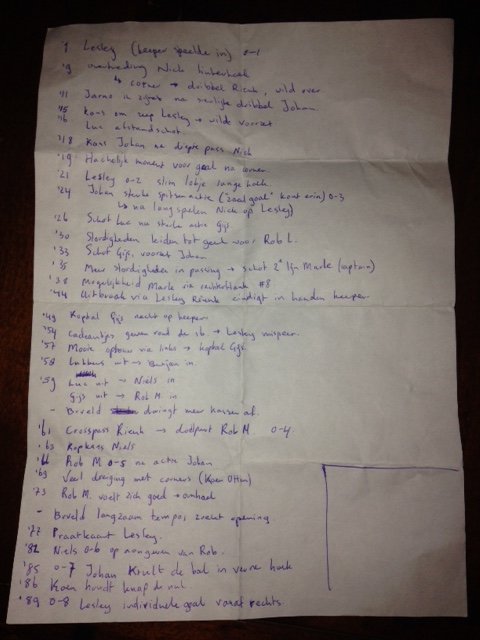 '1 Lesley (keeper speelde in) 0-1
'9 overtreding Nick linkerhoek
↳ corner → dribbel Rienk, wild over
'11 Jarno in zijnet na sierlijke dribbel Johan.
'15 Kans om zeep Lesley → wilde voorzet
'16 Luc afstandschot.
'18 Kans Johan na diepte pass Nick
'19 Hachelijk moment voor goal na corner
'21 Lesley 0-2 slim lobje lange hoek.
'24 Johan sterke spitsenactie ("zaalgoal" kont erin) 0-3
↳ na lang spelen Nick op Lesley)
'26 Schot Luc na sterke actie Gijs
'30 Slordigheden leiden tot geel voor Rob L.
'33 Schot Gijs, voorzet Johan
'35 Meer slordigheden in passing → schot 2e lijn Marle (captain)
'38 Mogelijkheid Marle via rechterflank #8
'44 Uitbraak via Lesley Rienk eindigt in handen keeper.
'49 Kopbal Gijs recht op keeper
'54 Cadeautjes gevend rond de 16 → Lesley
'57 Mooie opbouw via links → kopbal Gijs.
'58 Lubbers uit → in.
'59 Luc uit → Niels in
Gijs uit → Rob M. in
- Boveld dwingt meer kansen af.
'61 Crosspass Rienk → doelpunt Rob M. 0-4.
'63 Kopkans Niels
'66 Rob M 0-5 na actie Johan
'69 Veel dreiging met corners (Koen Otten)
'73 Rob M. voelt zich goed → omhaal
- Boveld langzaam tempo, zoekt opening.
'77 Praatkaart Lesley.
'82 Niels 0-6 op aangeven van Rob.
'85 0-7 Johan Krult de bal in verre hoek
'86 Koen houdt knap de nul
'89 0-8 Lesley individuele goal vanaf rechts.